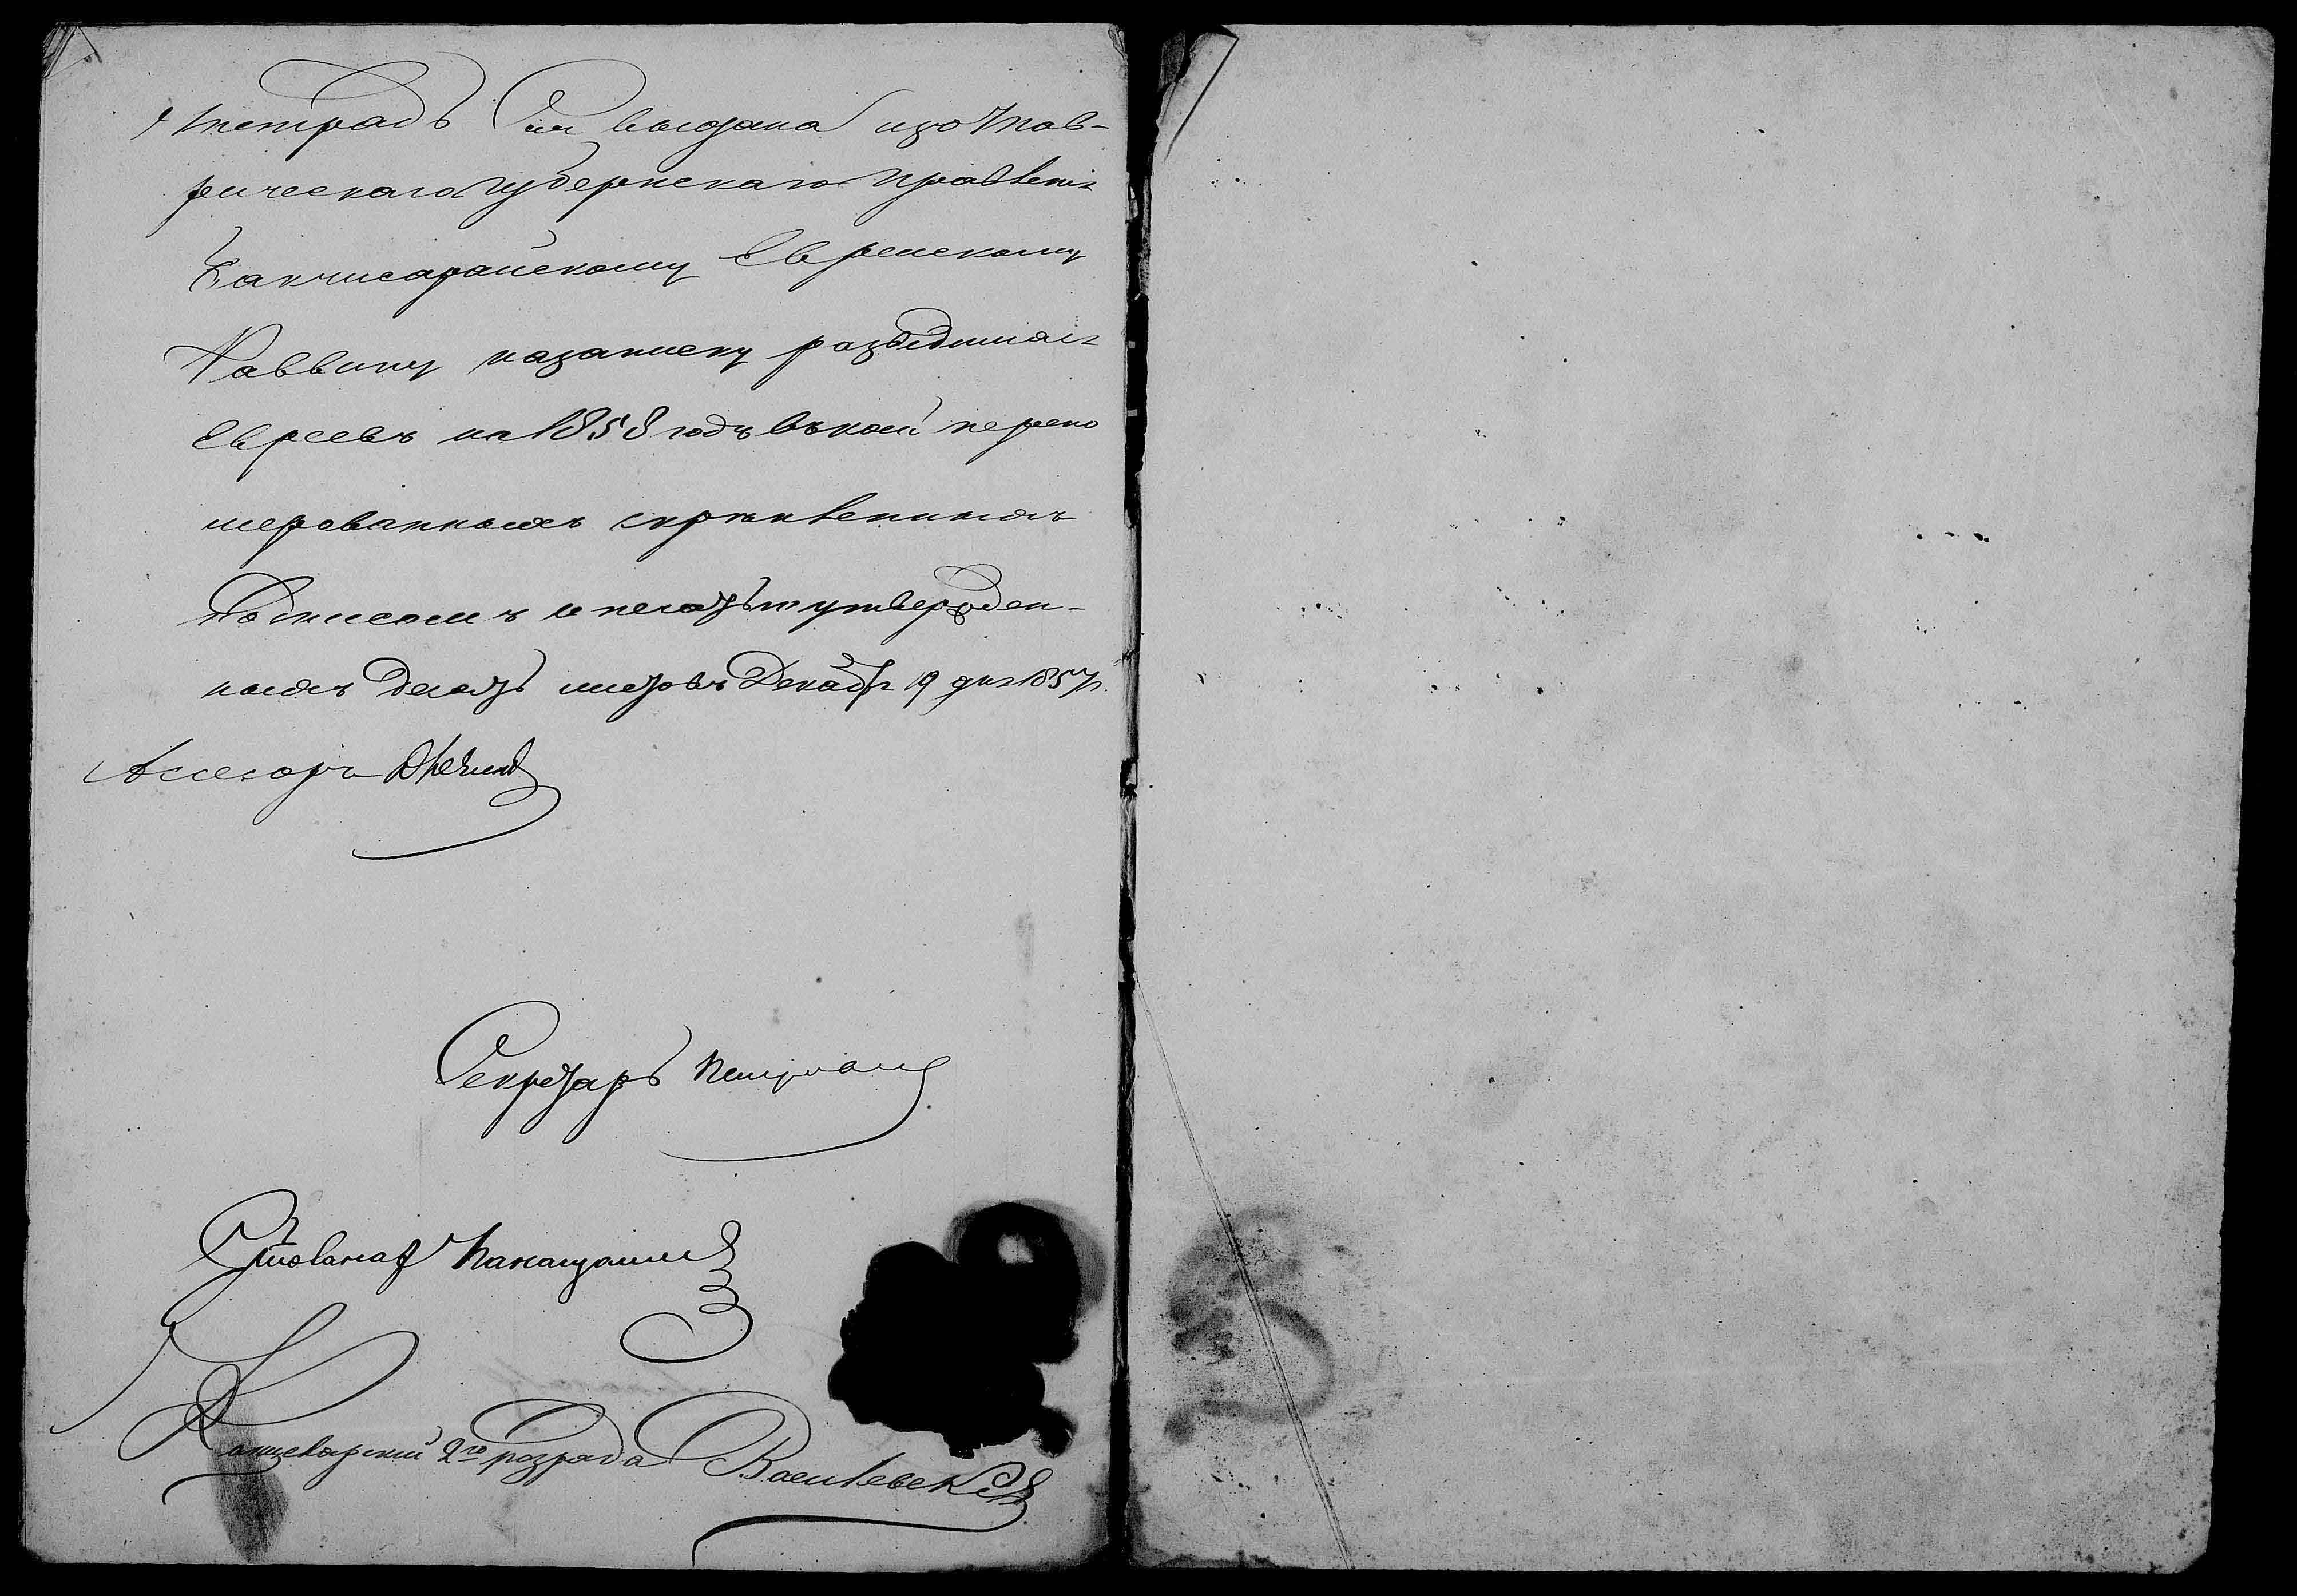 тетрадь Сія выдана изъ Тав-
рическаго Губернскаго Правленія
Бакчисарайскому Еврейскому
Раввину на записку разведшихся
Евреевъ на 1858 годъ въ коей перено
мерованныхъ скрѣпленныхъ
Подписомъ и печатью утвержден-
ныхъ десять листовъ Декабря 19 дня 1857 г.
Ассесоръ
Секретарь
Столоначал
Канцелярскій 2го разряда Василевскій